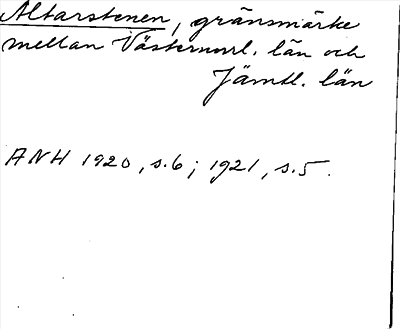 Altarstenen, gränsmärke
mellan Västernorrl. län och
Jämtl. län
ANH 1920, s.6; 1921, s.5.